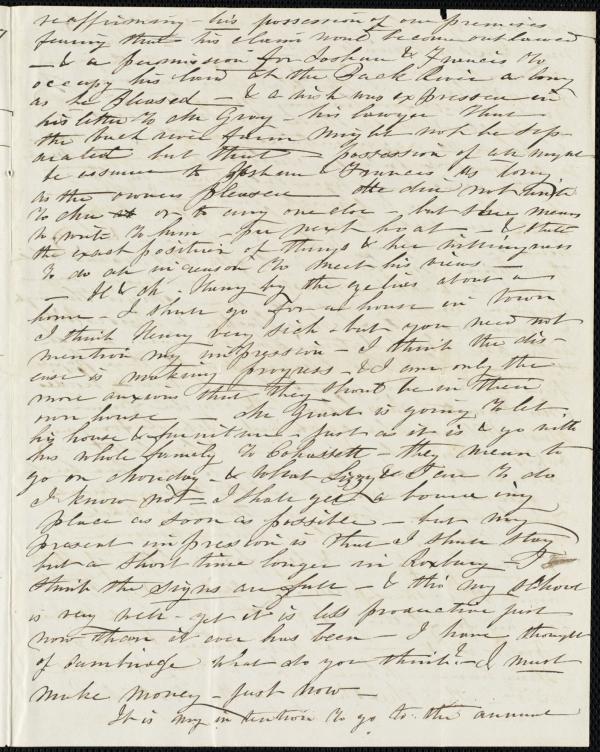 reaffirming - his possession of our premises
fearing that his claim would become outlawed
- & a permission for Joshua & Francis to
occupy his land at the Back River as long
as he Pleased - & a wish was expressed in
his letter to Mr Gray - his lawyer that
the back river farm might not be sep-
arated but that possession of it might
be assured to Joshua & Francis as long
as the owners Pleased - She did not write
to him or to any one else - but she means
to write to him - per next boat - & state
the exact position of things & her willingness
to do all in reason to meet his views -
- H & Mr. Henry by the eye lives about a
home - I shall go for a house in town
I think Henry very sick - but you need not
mention my impression - I think the dis-
ease is making progress - & I am only the
more anxious that they should be in their
own house - Mr Grant is going to let
his house & furniture - just as it is & go with
his whole family to Cohassett - they mean to
go on Monday - & what Lizzy & I are to do
I know not - I shall get a boarding
place as soon as possible - but my
present impression is that I shall stay
but a short time longer in Roxbury - I
think the signs are full - & tho' my school
is very well - yet it is less productive just
now than it ever has been - I have thought
of Cambridge what do you think? - I must
make money - just now -
It is my intention to go to the annual